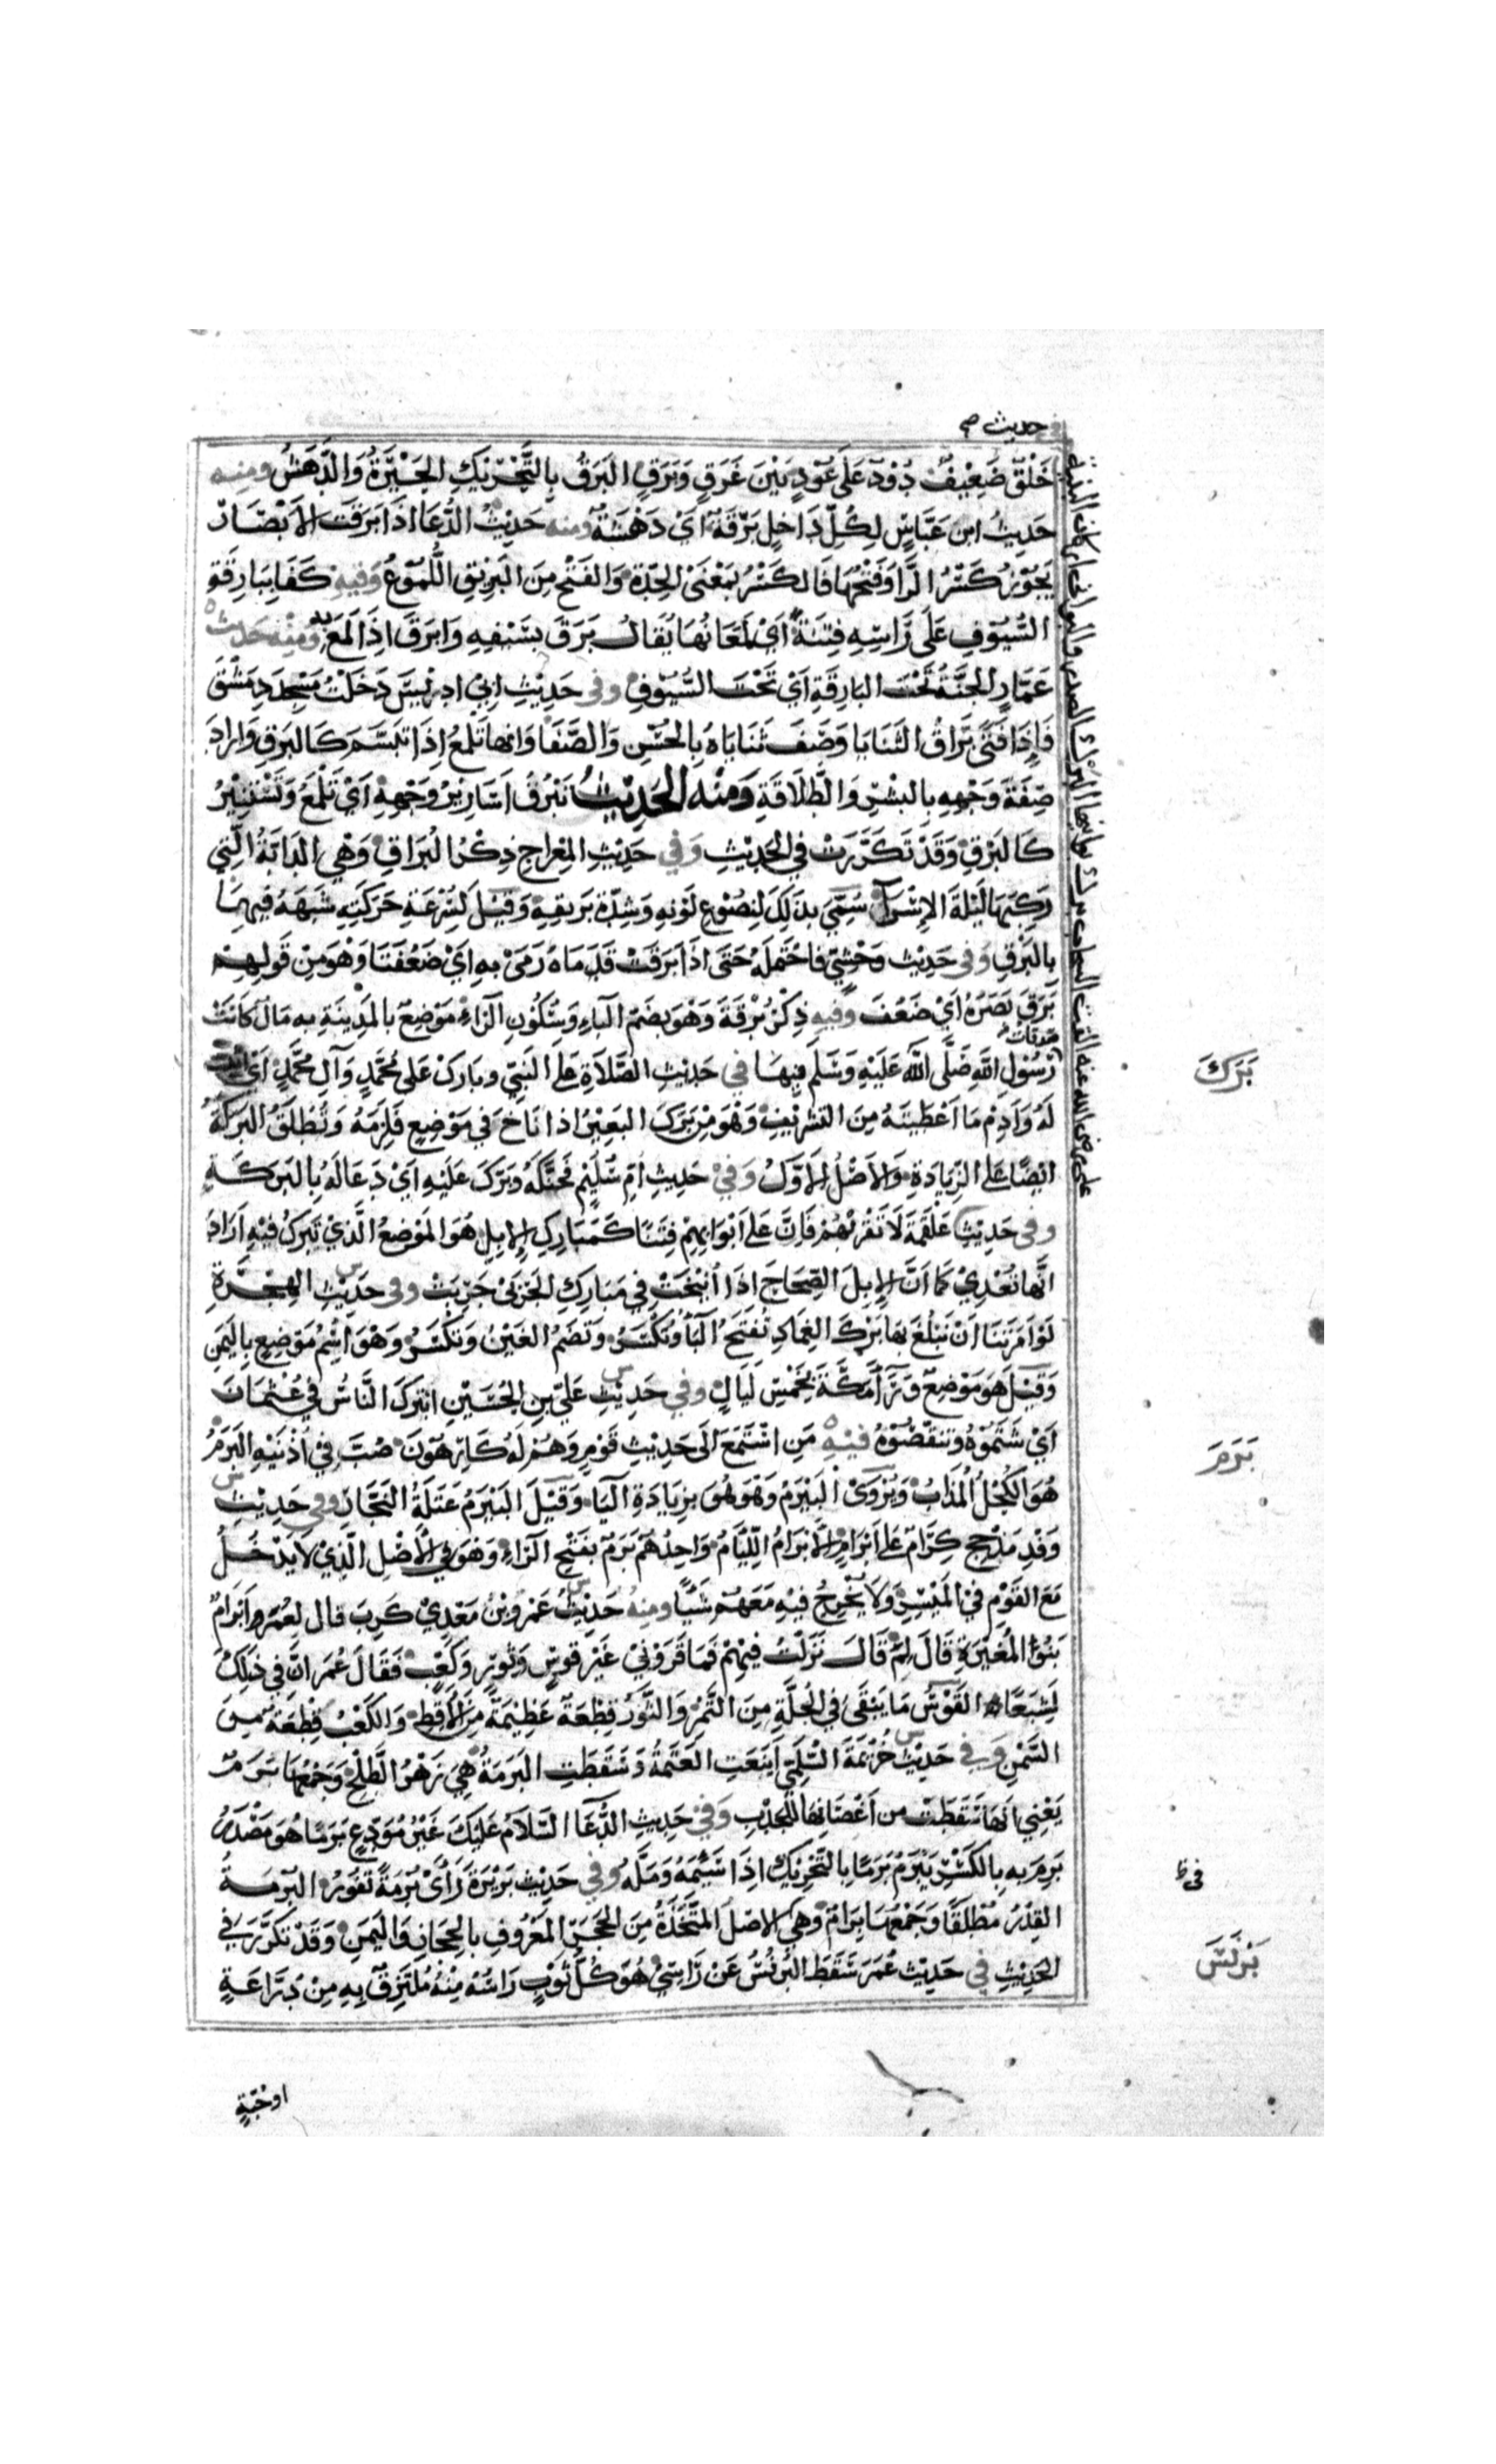 في حديث صح
خَلْقٌ ضَعِيْفٌ دُوْدٌ عَلَى عُوْدٍ بَيْنَ غَرَقٍ وَبَرَقٍ البَرَقُ بِالتَّحْرِيْكِ الحَيْرَةُ وَالدَّهَشُ ومنه
حَدِيثُ ابن عَبَّاسٍ لِكُلِّ دَاخِلٍ بَرْقَةٌ اَيْ دَهْشَةٌ ومنه حَدِيْثُ الدُّعَا اذَا بَرَقَتْ الأَبْصَارُ
يَجُوْزُ كَسْرُ الرَّا وَفَتْحُهَا فَالكَسْرُ بِمَعْنَىْ الحِيْرَةِ وَالفَتْحُ مِنَ البَرِيْقِ اللُّمُوْعُ وَفِيْهِ كَفَا بِبَارِقَةِ
السُّيُوْفِ عَلَى رَاسِهِ فِتْنَةً اَيْ لَمَعَانُهَا يُقَالُ بَرَقَ بِسَيْفِهِ وَابْرَقَ اِذَا لَمَعَ بِهِ وَمِنْهُ حَدِيثُ
عَمَّارٍ الجَنَّةُ تَحْتَ البَارِقَةِ اَيْ تَحْتَ السُّيُوْفِ وفى حَدِيْثِ ابِيْ ادْرِيْسَ دَخَلْتُ مَسْجِدَ دِمَشْقَ
فَاِذَا فَتَىً بَرَّاقُ الثَّنَايَا وَصَفَ ثَنَايَاهُ بِالحُسْنِ وَالصَّفَا وَانها تَلْمَعُ اِذَا تَبَسَّمَ كَالبَرقِ وَارَادَ
صِفَةَ وَجْهِهِ بِالبِشْرِ وَالطَّلَاقَةِ وَمِنْهُ الحَدِيْثُ تَبْرُقُ اَسَارِيْرُ وَجْهِهِ اَيْ تَلْمَعُ وَتَسْتَنِيْرُ
كَالبَرْقِ وَقَدْ تَكَرَّرَتْ فِي الحَدِيْثِ وَفِي حَدِيْثِ المِعْرَاجِ ذِكْرُ البُرَاقِ وَهْيَ الدَابَّةُ الَّتِي
رَكِبَهَا لَيْلَةَ الإِسْرَآ سُمِّيَ بِذَلِكَ لِنُصُوْعِ لَوْنِهِ وَشِدَّةِ بَرِيقِهِ وَقِيْلَ لِسُرْعَةِ حَرَكَتِهِ شَبَّهَهُ فِيهِمَا
بِالبَرْقِ وَفى حَدِيْثِ وَحْشِيٍّ فَاحْتَمَلَهُ حَتَى اذَا بَرَقَتْ قَدَمَاهُ رَمَىْ بِهِ اَيْ ضَعُفَتَا وَهْوَ مِنْ قَوْلِهِمْ
بَرَقَ بَصَرُهُ اَيْ ضَعُفَ وَفِيهِ ذِكْرُ بُرْقَةَ وَهْوَ بِضَمِّ البَاءِ وَسُكُوْنِ الرَّاءِ مَوْضِعٌ بِالمَدِيْنَةِ بِهِ مَالٌ كَانَتْ
صدقات
رَسُوْلِ اللهِ صَلَّى اللهُ عَلَيْهِ وَسَلَّمَ مِنْهَا في حَدِيْثِ الصَّلَاةِ عَلى النَبِيّ وبَارِكْ عَلى مُحَمَّدٍ وَآلِ مُحَمَّدٍ اَيْ اثْبِتْ
لَهُ وَاَدِمْ مَا اَعْطَيْتَهُ مِنَ التَشْرِيْفِ وَهْوَ مِنْ بَرَكَ البَعِيْرُ اذا انَاخَ فِي مَوْضِعٍ فَلَزِمَهُ وَتُطْلَقُ البَرَكَةُ
ايْضًا عَلى الزِّيَادَةِ وَالأَصْلُ الأَوَّلُ وَفِيْ حَدِيثِ اُمِّ سُلَيْمٍ فَحَنَّكَهُ وَبَرَّكَ عَلَيْهِ اَيْ دَعَا لَهُ بِالبَرَكَةِ
وفى حَدِيْثِ عَلْقَمَةَ لَا تَقْرَبْهُمْ فَاِنَّ عَلى اَبْوَابِهِمْ فِتَنًا كَمَبَارِكِ الإِبِلِ هُوَ المَوْضِعُ الَّذِيْ تَبْرُكُ فِيْهِ اَرَادَ
انَّهَا تُعْدِيْ كَمَا اَنَّ الإِبِلَ الصِّحَاحَ اذَا اُنِيْخَتْ فِي مَبَارِكِ الجَرْبَىْ جَرِبَتْ وفى حَدِيْثِ الهِجْرَةِ
لَوْ اَمَرْتَنَا اَنْ نَبْلُغَ بِهَا بَرْكَ الغِمَادِ تُفْتَحُ البَآ وَتُكْسَرُ وَتُضَمُّ الغَيْنُ وَتُكْسَرُ وَهْوَ اسْمُ مَوْضِعٍ بِاليَمَنِ
وَقِيْلَ هُوَ مَوْضِعٌ وَرَآ مَكَّةَ بِخَمْسِ لَيَالٍ وفى حَدِيْثِ عَلِيّ بنِ الحُسَيْنِ ابْتَرَكَ النَّاسُ فِي عُثْمَانَ
اَيْ شَتَمُوْهُ وَتَنَقَّصُوْهُ فيْهِ مَنِ اسْتَمَعَ الَى حَدِيْثِ قَوْمٍ وَهُمْ لَهُ كَارِهُوْنَ صُبَّ فِيْ اُذُنَيْهِ البَرَمُ
هُوَ الكُحْلُ المُذَابُ وَيُرْوَىْ البَيْرَمُ وَهْوَ هُوَ بِزِيَادَةِ اليَا وَقِيْلَ البَيْرَمُ عَتَلَةُ النَّجَّارِ وفى حَدِيْثِ
وَفْدِ مَذْحِجٍ كِرَامٌ عَلى اَبْرَامٍ الأَبْرَامُ اللِّئَامُ وَاحِدُهُمْ بَرَمٌ بِفَتْحِ الرَّاءِ وَهْوَ فِي الأَصْلِ الَّذِيْ لَا يَدْخُلُ
مَعَ القَوْمِ فِيْ المَيْسِرِ وَلَا يُخْرِجُ فِيْهِ مَعَهُمْ شَيًا ومنهُ حَدِيْثُ عَمْرِو بْنِ مَعْدِيْ كَرِبَ قال لِعُمَرَ ءَاَبْرَامٌ
بَنُوْ المُغِيْرَةِ قَالَ لِمَ قَالَ نَزَلْتُ فِيْهِمْ فَمَا قَرَوْنِيْ غَيْرَ قَوْسٍ وَثَوْرٍ وَكَعْبٍ فَقَالَ عُمَرُ انَّ فِي ذَلِكَ
لَشِبَعًا القَوْسُ مَا يَبْقَىْ فِي الجُلَّةِ مِنَ التَّمْرِ وَالثَّوْرُ قِطْعَةٌ عَظِيْمَةٌ مِنَ الأَقِطِ وَالكَعْبُ قِطْعَةٌ مِنَ
السَّمْنِ وَفِي حَدِيْثِ خُزَيْمَةَ السُّلَمِيِّ اَيْنَعَتِ العَنَمَةُ وَسَقَطَتِ البَرَمَةُ هِيَ زَهْرُ الطَّلْحِ وَجَمْعُهَا بَرَمٌ
يَعْنِي انَهَا سَقَطَتْ من اَغْصَانِهَا لِلْجَدْبِ وَفِيْ حَدِيثِ الدُّعَآ السَّلَامُ عَلَيْكَ غَيْرُ مُوَدَّعٍ بَرَمًا هُوَ مَصْدَرُ
بَرِمَ بِهِ بِالكَسْرِ يَبْرَمُ بَرَمًا بِالتَّحْرِيْكِ اِذَا سَئِمَهُ وَمَلَّهُ وفى حَدِيْثِ بَرِيْرَةَ رَأَىْ بُرْمَةً تَفُوْرُ البُرْمَةُ
القِدْرُ مُطْلَقًا وَجَمْعُهَا بِرَامٌ وَهْيَ الاَصْلُ المُتَّخَذَةُ مِنَ الحَجَرِ المَعْرُوفِ بِالحِجَازِ وَاليَمَنِ وَقَدْ تَكَرَّرَتْ فِي
الحَدِيْثِ في حَدِيْثِ عُمَرَ سَقَطَ البُرْنُسُ عَنْ رَاسِيْ هُوَ كُلُّ ثَوْبٍ رَاسُهُ مِنْهُ مُلْتَزِقٌ بِهِ مِنْ دُرَّاعَةٍ
او جُبَّةٍ
بَرَكَ
بَرَمَ
في ظ
بَرْنَسَ